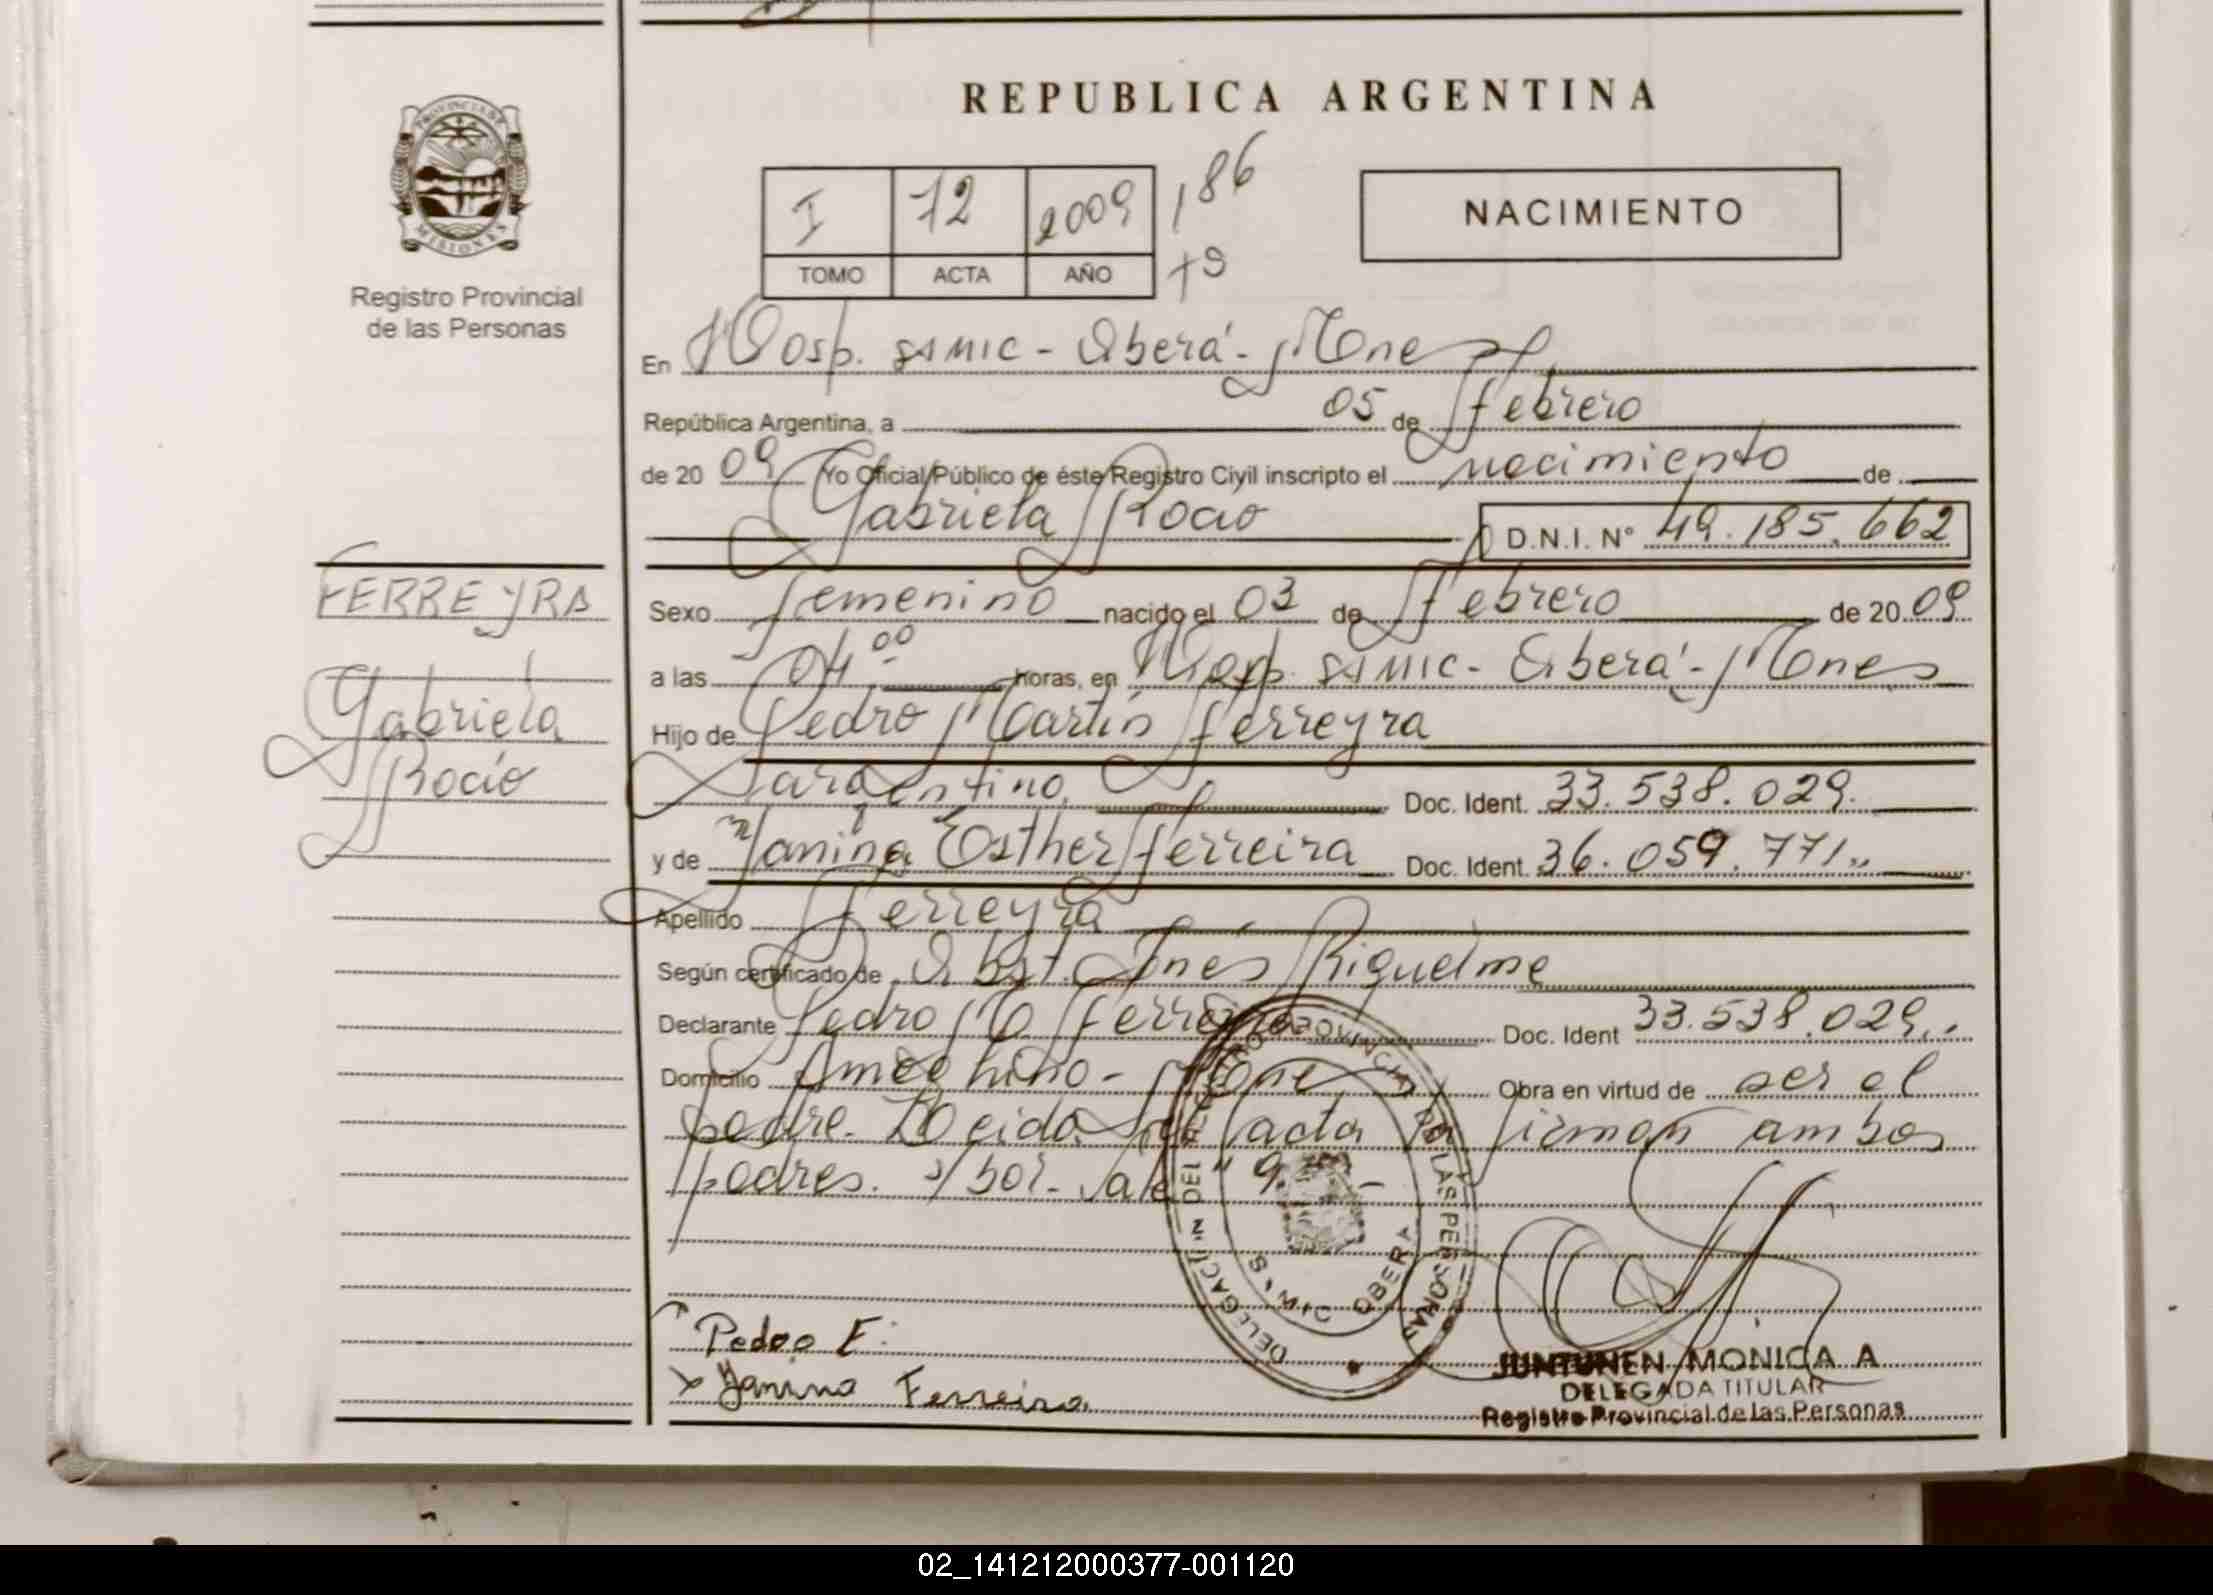 REPUBLICA ARGENTINA
PROVINCIA DE
MISIONES
Registro Provincial
de las Personas
I 72 2009 186
TOMO ACTA AÑO
NACIMIENTO
En Hosp. SAMIC - Oberá - Mnes
República Argentina, a 05 de febrero
de 20 09 Yo Oficial Público de éste Registro Civil inscripto el nacimiento de
Gabriela Rocío D.N.I. N° 49.185.662
FERREYRA
Gabriela
Rocío
Sexo femenino nacido el 03 de febrero de 20 09
a las 04 00 horas, en Hosp. SAMIC - Oberá - Mnes
Hijo de Pedro Martín Ferreyra
argentino Doc. Ident. 33.538.029.
y de Yanina Esther Ferreira Doc. Ident. 36.059.771
Apellido Ferreyra
Según certificado de Obst. Inés Riquelme
Declarante Pedro M Ferreyra Doc. Ident 33.538.029
Domicilio Ameghino - Mnes Obra en virtud de ser el
padre. Leida el acta la firman ambos
padres. s/bor. Vale "9" -
DELEGACIÓN DEL REGISTRO PROVINCIAL DE LAS PERSONAS
SAMIC OBERA
Pedro F.
x Yanina Ferreira
JUNTUNEN MONICA A
DELEGADA TITULAR
Registro Provincial de las Personas
02_141212000377-001120